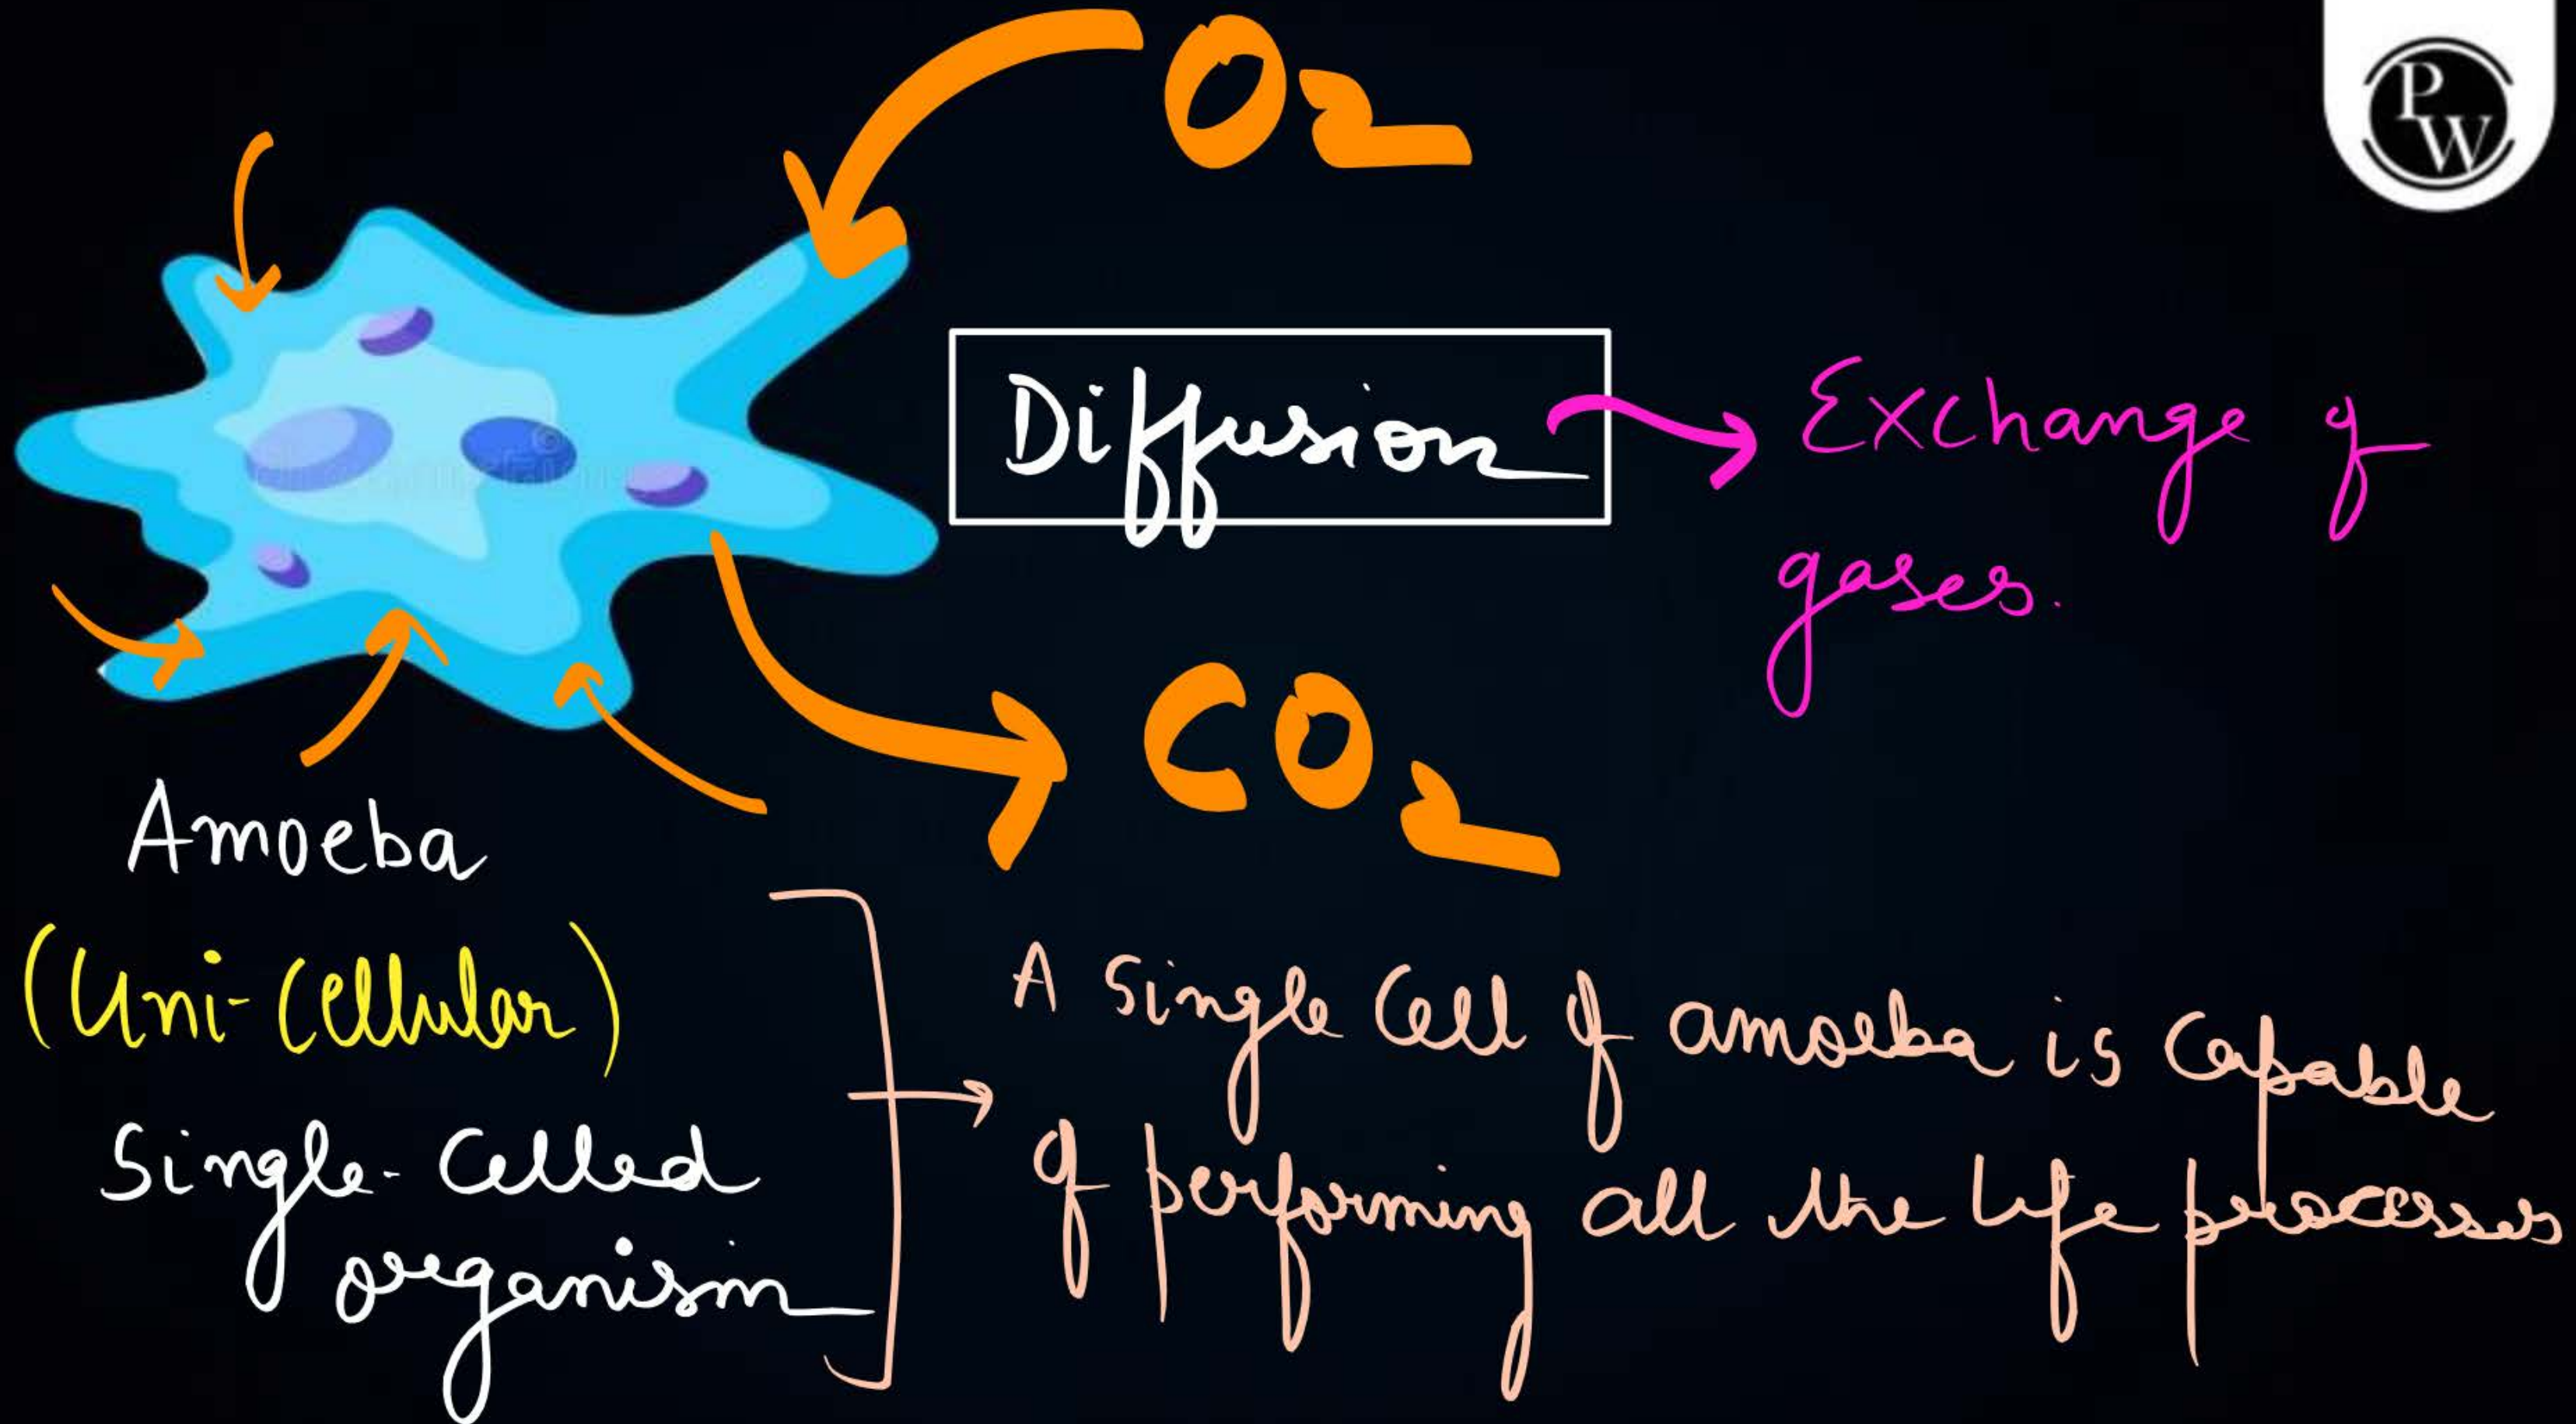 O2
PW
Diffusion → Exchange of
gases.
CO2
Amoeba
(Uni-Cellular)
Single-Celled
organism
A Single Cell of amoeba is Capable
of performing all the life processes